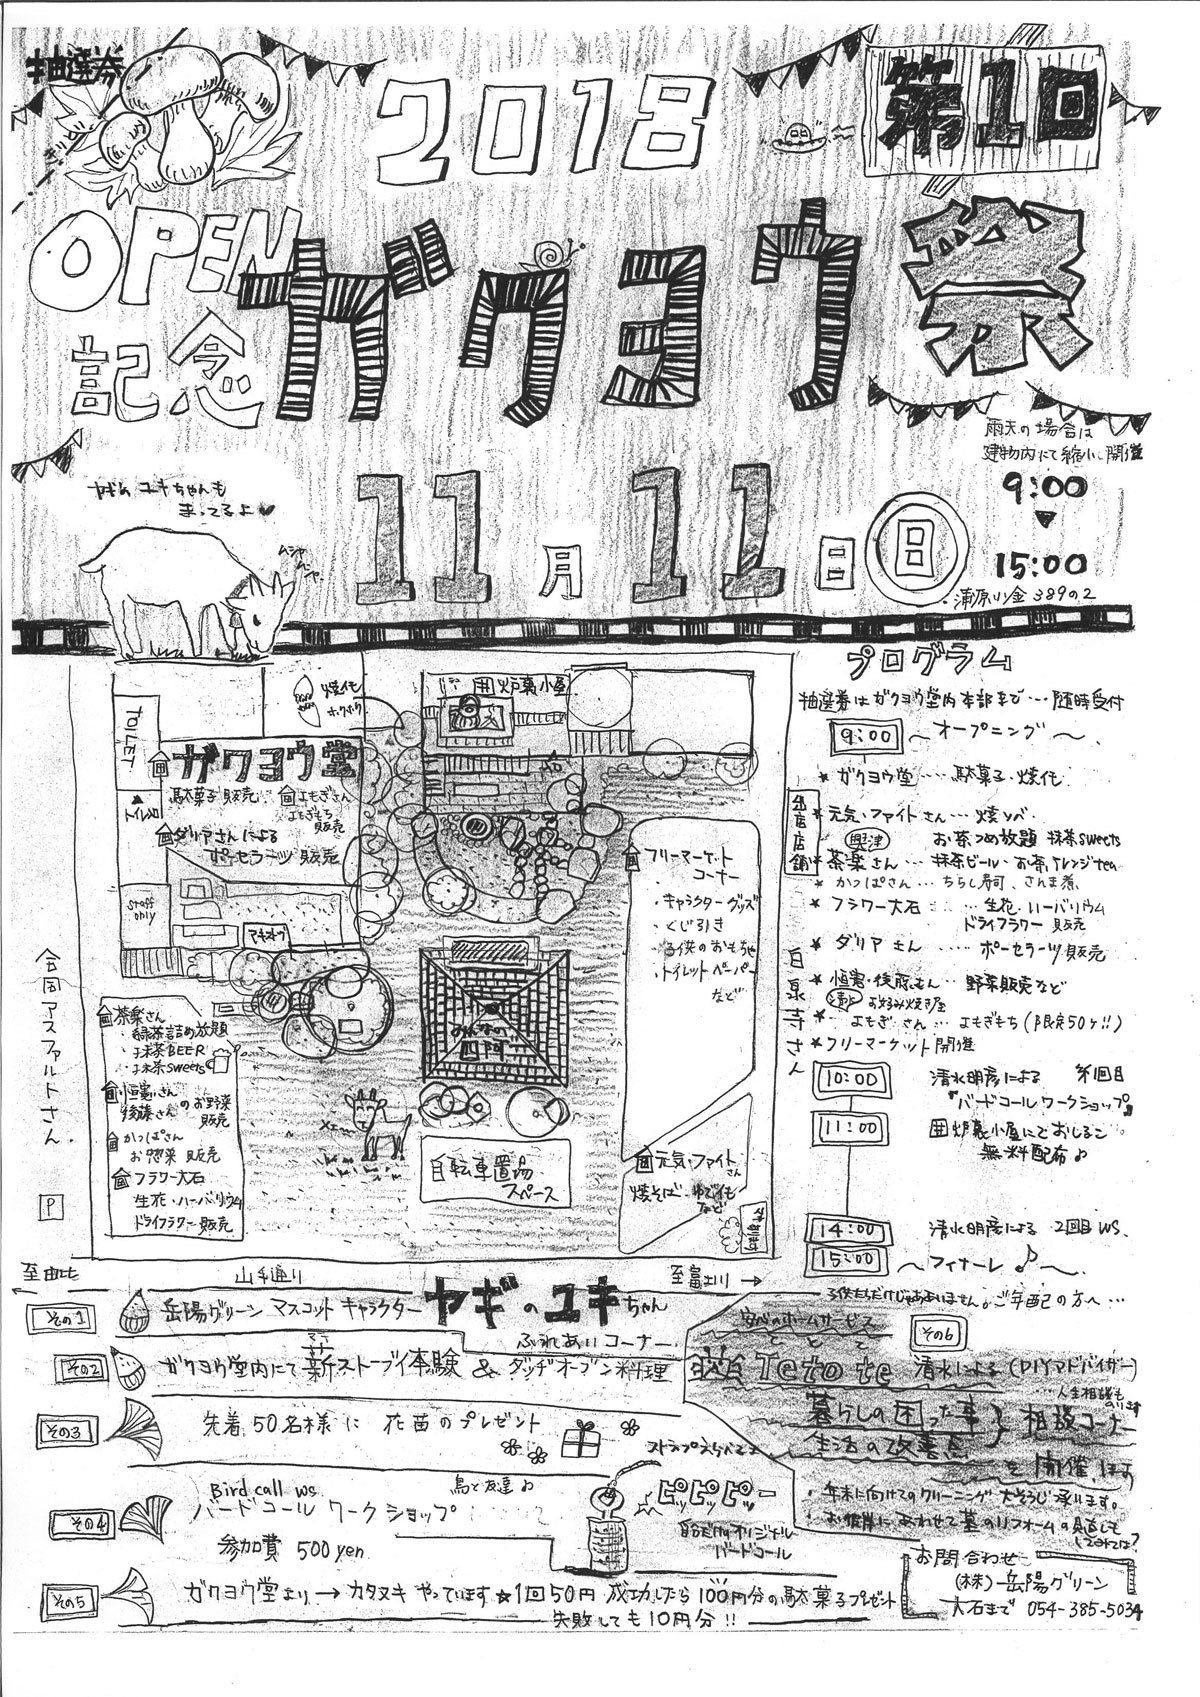 抽選券
キリトリ
2018
第1回
OPEN
記念
ガクヨウ祭
雨天の場合は
建物内にて縮小開催
9:00
15:00
ヤギの ユキちゃんも
まってるよ♥
ムシャ
ムシャ
11月11日(日)
蒲原小金389の2
プログラム
抽選券はガクヨウ堂内本部まで…随時受付
9:00 〜オープニング〜
★ガクヨウ堂‥‥駄菓子・焼芋
出店店舗
★元気・ファイトさん…焼ソバ
興津
お茶つめ放題 抹茶sweets
★茶楽さん…抹茶ビール・お茶アレンジtea
*かっぱさん…ちらし寿司、さんま煮
★フラワー大石……生花・ハーバリウム
ドライフラワー販売
★ダリアさん……ポーセラーツ販売
★恒憲・後藤さん…野菜販売など
お好み焼き屋
★よもぎさん…よもぎもち(限定50ケ!!)
★フリーマーケット開催
10:00 清水明彦による 第1回目
『バードコールワークショップ』
11:00 囲炉裏小屋にておしるこ
無料配布♪
14:00 清水明彦による 2回目 WS.
15:00 〜フィナーレ♪〜
TOILET
トイレ入口
焼芋
ホクホク
囲炉裏小屋
ガクヨウ堂
駄菓子販売
よもぎさん
よもぎもち
販売
ダリアさんによる
ポーセラーツ販売
staff
only
フリーマーケット
コーナー
・キャラクターグッズ
・くじ引き
・子供のおもちゃ
・トイレットペーパー
など
合同アスファルトさん
P
茶楽さん
・緑茶詰め放題
・抹茶BEER
・抹茶sweets
恒憲さん
後藤さん の お野菜
販売
かっぱさん
お惣菜販売
フラワー大石
生花・ハーバリウム
ドライフラワー販売
みんなの
四阿
自転車置場
スペース
元気・ファイトさん
焼そば・ゆで芋
など
至由比
山手通り
至富士川→
その1 岳陽グリーン マスコットキャラクター ヤギのユキちゃん
ふれあいコーナー
その2 ガクヨウ堂内にて薪ストーブ体験 & ダッヂオーブン料理
マキ
その3 先着50名様に 花苗のプレゼント
その4 Bird call ws 鳥と友達♪
バードコール ワークショップ
参加費 500yen
ピッピッピー
自分だけのオリジナル
バードコール
その5 ガクヨウ堂より→カタヌキやっています★1回50円 成功したら100円分の駄菓子プレゼント
失敗しても10円分!!
子供たちだけじゃありません。ご年配の方へ…
安心のホームサービス
その6
Tetote 清水による(DIYアドバイザー)
人生相談も
のります
暮らしの困った事
生活の改善点
相談コーナー
を開催します
・年末に向けてのクリーニング 大そうじ承ります。
・お彼岸にあわせて墓のリフォームの見直しも
お問合わせ
(株)岳陽グリーン
大石まで 054-385-5034